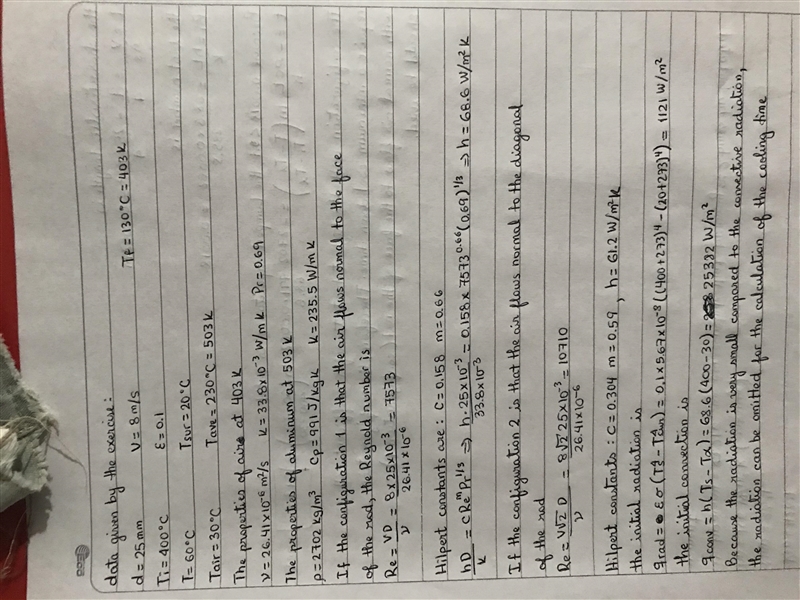 data given by the exercise:
d = 25mm V = 8 m/s Tf = 130°C = 403K
Ti = 400°C ε = 0.1
T = 60°C Tsur = 20°C
Tair = 30°C Tave = 230°C = 503K
The properties of aire at 403K
ν = 26.41x10⁻⁶ m²/s k = 33.8x10⁻³ W/mK Pr = 0.69
The properties of aluminum at 503K
ρ = 2702 kg/m³ Cp = 991 J/kgK k = 235.5 W/mK
If the configuration 1 is that the air flows normal to the face
of the rod, the Reynold number is
Re = VD/ν = 8x25x10⁻³/26.41x10⁻⁶ = 7573
Hilpert constants are: C = 0.158 m = 0.66
hD/k = C Re^m Pr^1/3 ⇒ h·25x10⁻³/33.8x10⁻³ = 0.158x7573^0.66 (0.69)^1/3 ⇒ h = 68.6 W/m²K
If the configuration 2 is that the air flows normal to the diagonal
of the rod
Re = V√2 D/ν = 8√2 25x10⁻³/26.41x10⁻⁶ = 10710
Hilpert constants: C = 0.304 m = 0.59, h = 61.2 W/m²K
the initial radiation is
qrad = εσ(Ts⁴-Tsur⁴) = 0.1x5.67x10⁻⁸((400+273)⁴-(20+273)⁴) = 1121 W/m²
the initial convection is
qconv = h(Ts-Tα) = 68.6(400-30) = 25332 W/m²
Because the radiation is very small compared to the convective radiation,
the radiation can be omitted for the calculation of the cooling time